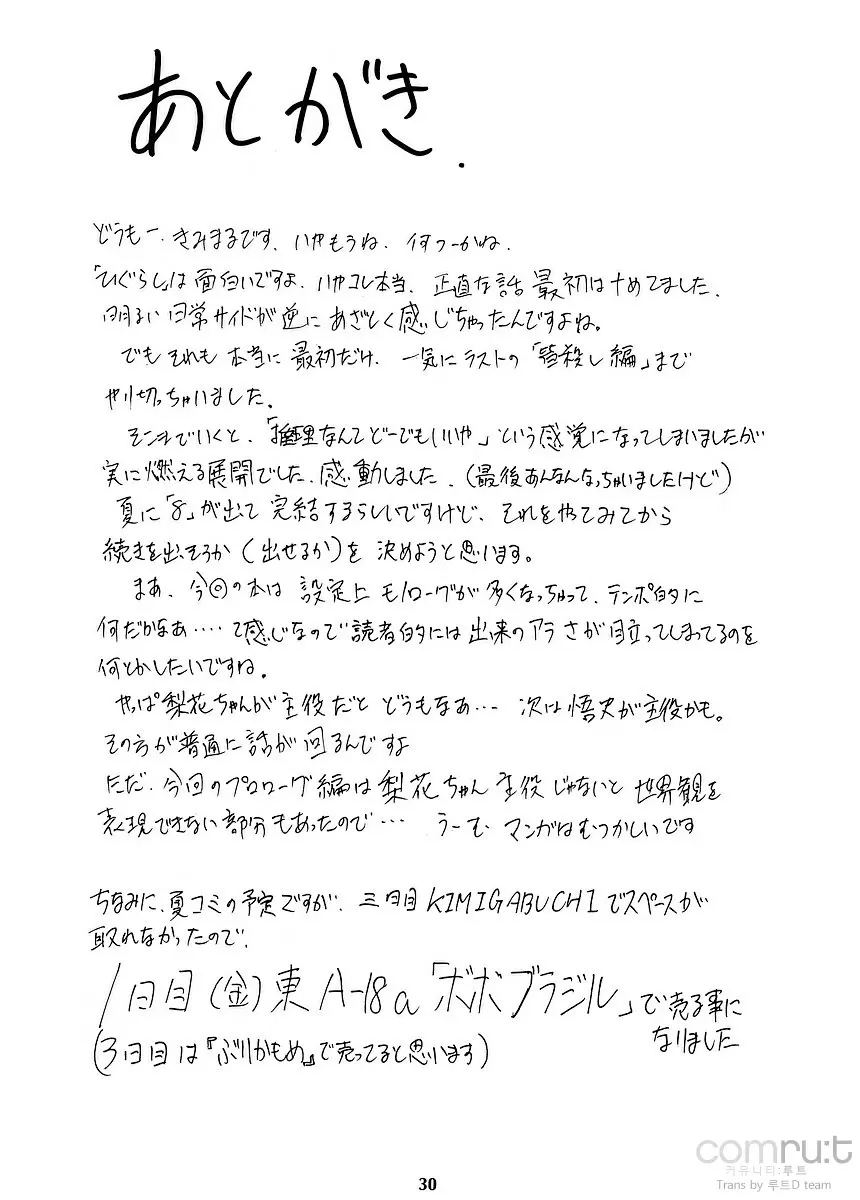 あとがき.
どうもー、きみまるです、いやもうね、何つーかね、
「ひぐらし」は面白いですよ、いやコレ本当、正直な話最初はナメてました、
明るい日常サイドが逆にあざとく感じちゃったんですよね。
でもそれも本当に最初だけ、一気にラストの「皆殺し編」まで
やり切っちゃいました。
そこまでいくと、「推理なんてどーでもいいや」という感覚になってしまいましたが
実に燃える展開でした、感動しました、(最後あんなんなっちゃいましたけど)
夏に「8」が出て完結するらしいですけど、それをやってみてから
続きを出そうか(出せるか)を決めようと思います。
まあ、今回の本は設定上モノローグが多くなっちゃって、テンポ的に
何だかなあ‥‥て感じなので読者的には出来のアラさが目立ってしまってるのを
何とかしたいですね。
やっぱ梨花ちゃんが主役だとどうもなあ‥‥次は悟史が主役かも。
その方が普通に話が回るんですよ
ただ、今回のプロローグ編は梨花ちゃん主役じゃないと世界観を
表現できない部分もあったので‥‥うーむ、マンガはむつかしいです
ちなみに、夏コミの予定ですが、三日目KIMIGABUCHIでスペースが
取れなかったので、
1日目(金)東A-18a「ボボブラジル」で売る事に
なりました
(3日目は『ぶりかもめ』で売ってると思います)
30
comru:t
커뮤니티:루트
Trans by 루트D team